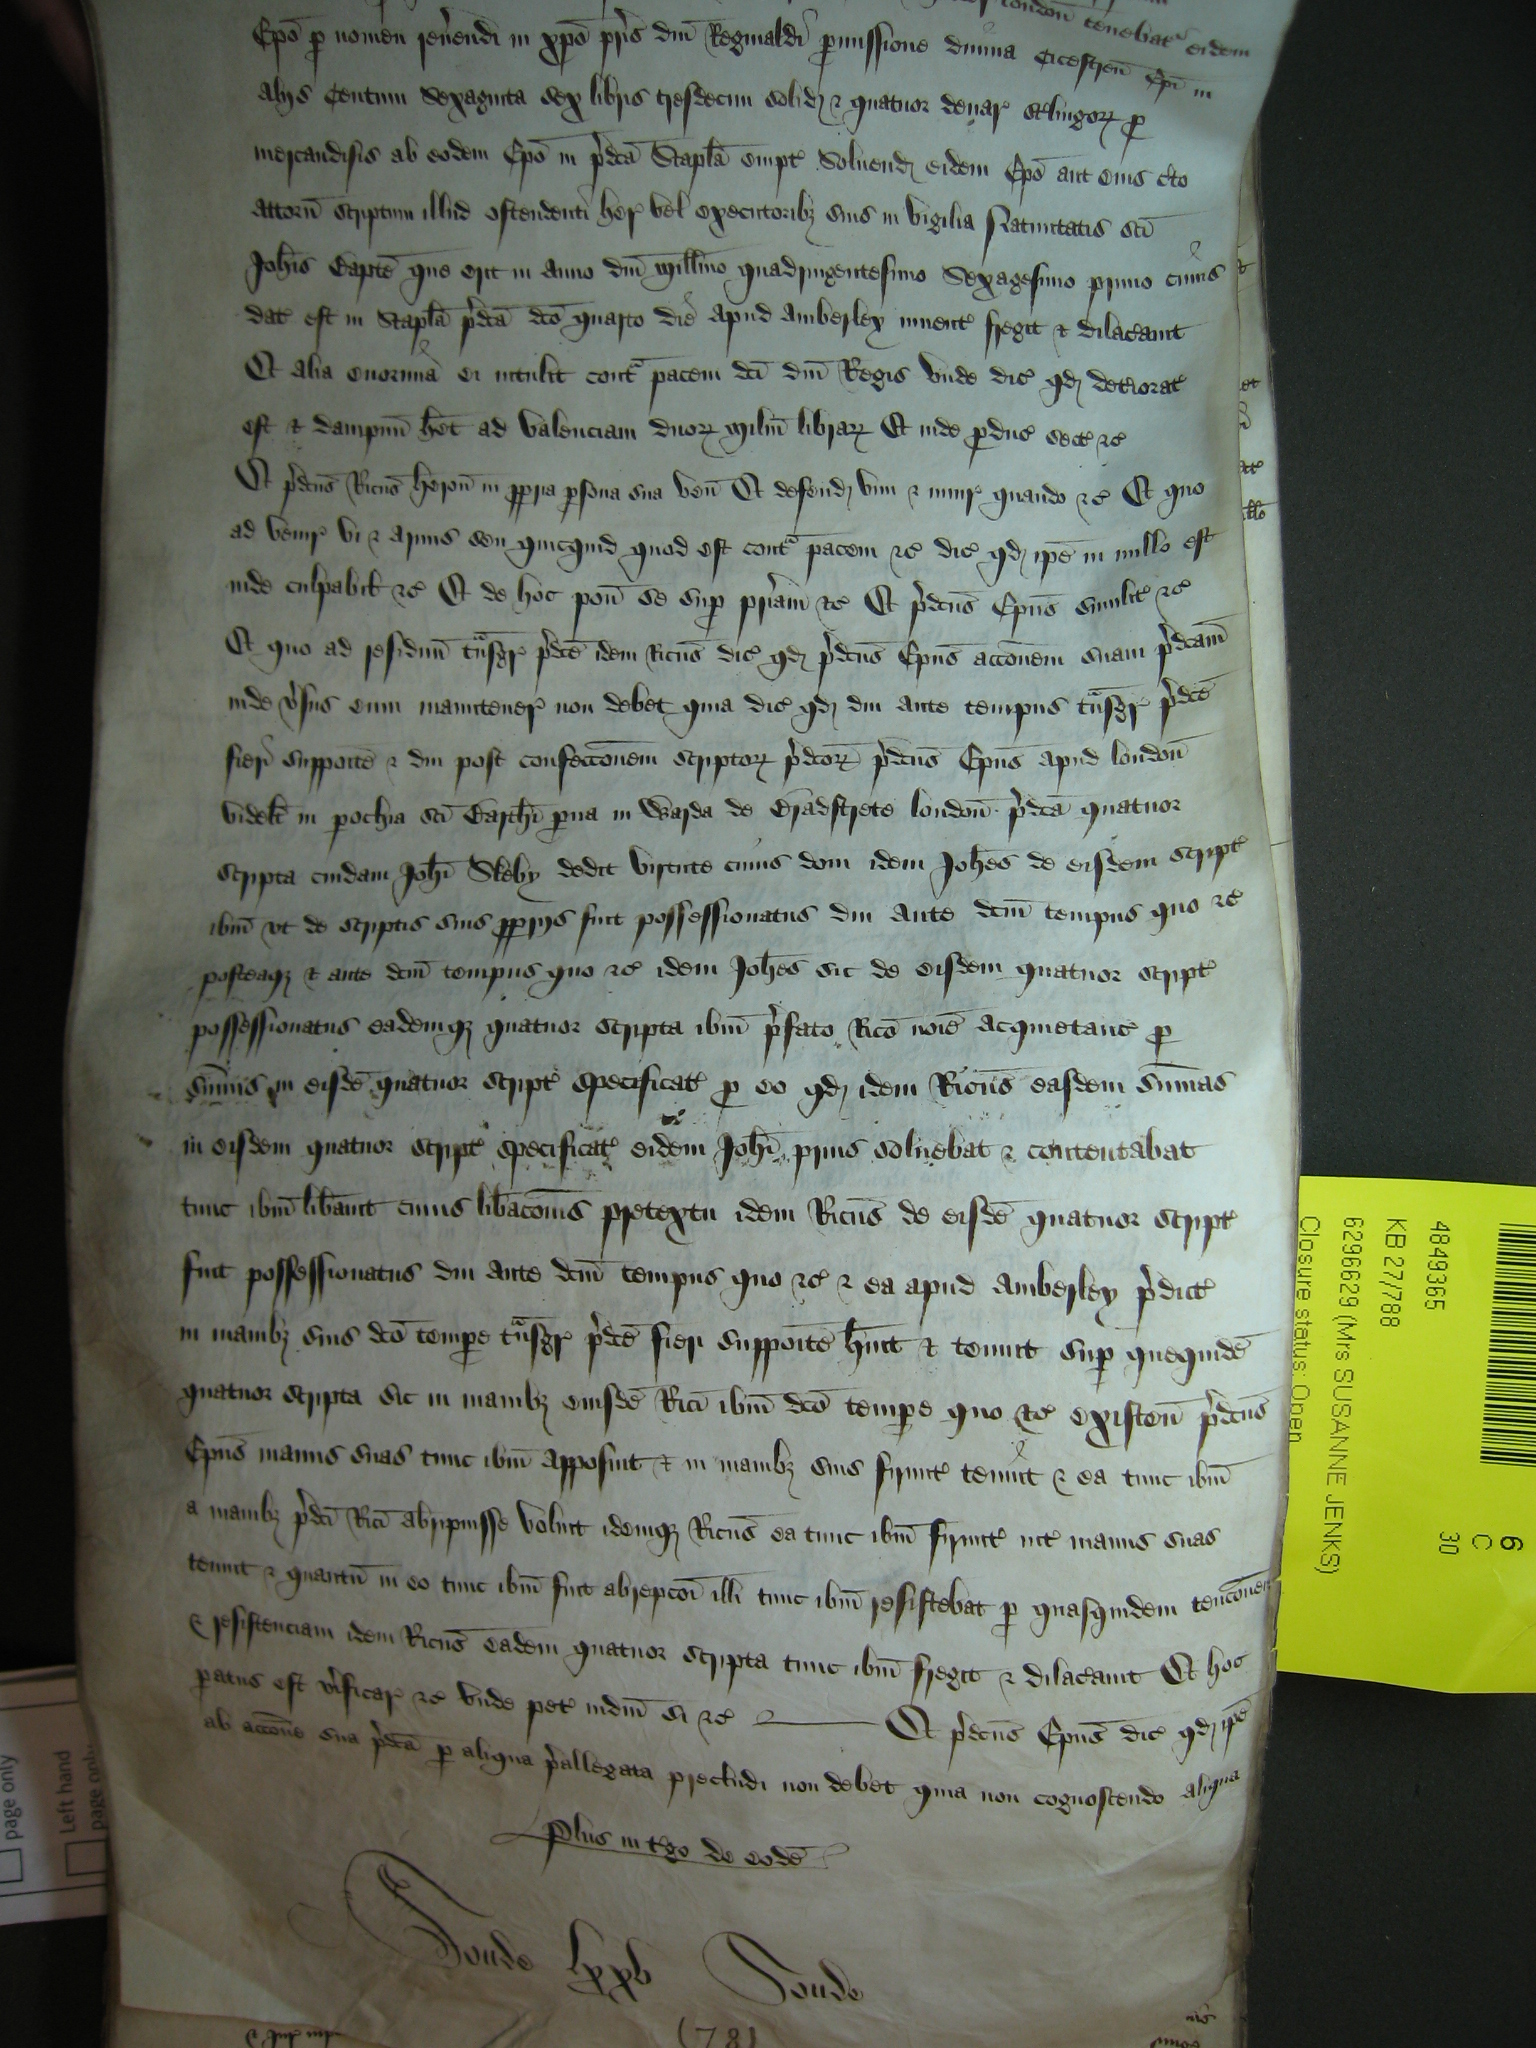 london tenebat̉ eidem
Ep̄o p nomen rev̉endi in xp̄o pris dn̄i Reginaldi p̉missione divina Cicestren̄ Ep̄i in
aliis Centum Sexaginta sex libris tresdecim solid & quatuor denar st̉lingoꝝ p
mercandisis ab eodem Ep̄o in p̉dc̄a Stapl̄a empt̉ Solvend eidem Ep̄o aut eius c̉to
attorn̄ scriptum illud ostendenti her̉ vel executoribꝫ suis in vigilia Nativitatis sc̄i
Joh̄is Bapt̄e que erit in Anno dn̄i Mill̄imo quadringentesimo Sexagesimo primo cuius
dat̉ est in Stapl̄a p̉dc̄a dc̄o quarto die apud Amberley invent̉ fregit & dilac̉avit
Et alia enormia ei intulit cont̉ pacem dc̄i dn̄i Regis Unde dic̉ qd det̉iorat̉
est & dampnū h̄et ad valenciam duoꝝ miliū libraꝝ Et inde p̉duc̉ sect̉ &c̉
Et p̉dc̄us Ric̄us heron̄ in ppria p̉sona sua ven̄ Et defend vim & iniur̉ quando &c̉ Et quo
ad venir̉ vi & armis seu quicquid quod est cont̉ pacem &c̉ dic̉ qd ip̄e in nullo est
inde culpabil̄ &c̉ Et de hoc pon̄ se sup pr̉iam &c̉ Et p̉dc̄us Ep̄us similit̉ &c̉
Et quo ad residuū tn̉sgr̉ p̉dc̄e idem Ric̄us dic̉ qd p̉dc̄us Ep̄us acc̄onem suam p̉dc̄am
inde v̉sus eum manutener̉ non debet quia dic̉ qd diu ante tempus tn̉sgr̉ p̉dc̄e
fieri supposit̄e & diu post confecc̄onem scriptoꝝ p̉dc̄oꝝ p̉dc̄us Ep̄us apud london̄
videl̄t in p̉ochia sc̄i Barth̄i p̉va in Warda de Bradstrete london̄ p̉dc̄a quatuor
scripta cuidam Joh̄i Skeby dedit virtute cuius doni idem Joh̄es de eisdem script̉
ibm̄ ut de scriptis suis ppriis fuit possessionatus diu ante dc̄m tempus quo &c̉
posteaqꝫ & ante dc̄m tempus quo &c̉ idem Joh̄es sic de eisdem quatuor script̉
possessionatus eademqꝫ quatuor scripta ibm̄ p̉fato Ric̄o noīe acquietanc̉ p
sum̄is in eisdē quatuor script̉ specificat̉ p eo qd idem Ric̄us easdem sum̄as
in eisdem quatuor script̉ specificat̉ eidem Joh̄i prius solvebat & contentabat
tunc ibm̄ lib̄avit cuius lib̄ac̄onis pretextu idem Ric̄us de eisdē quatuor script̉
fuit possessionatus diu ante dc̄m tempus quo &c̉ & ea apud Amberley p̉dict̉
in manibꝫ suis dc̄o tempe tn̉sgr̉ p̉dc̄e fieri supposit̄e h̄uit & tenuit sup quequidē
quatuor scripta sic in manibꝫ eiusdē Ric̄i ibm̄ dc̄o tempe quo &c̉ existen̄ p̉dc̄us
Ep̄us manus suas tunc ibm̄ apposuit & in manibꝫ suis firmit̉ tenuit & ea tunc ibm̄
a manibꝫ p̉dc̄i Ric̄i abripuisse voluit idemqꝫ Ric̄us ea tunc ibm̄ firmit̉ int̉ manus suas
tenuit & quantū in eo tunc ibm̄ fuit abrepc̄oi illi tunc ibm̄ resistebat p quasquidem tenc̄onem
& resistenciam idem Ric̄us eadem quatuor scripta tunc ibm̄ fregit & dilac̉avit Et hoc
p̉atus est v̉ificar̉ &c̉ Unde pet̉ iudm̄ si &c̉ Et p̉dc̄us Ep̄us dic̉ qd ip̄e
ab acc̄one sua p̉dc̄a p aliqua p̉allegata precludi non debet quia non cognoscendo aliqua
Plus in t̉go de eodē
Sonde lxxv Sonde
(78)
4849365
KB 27/788
6296629 (Mrs SUSANNE JENKS)
Closure status: Open
6
C
30
page only
Left hand
page only